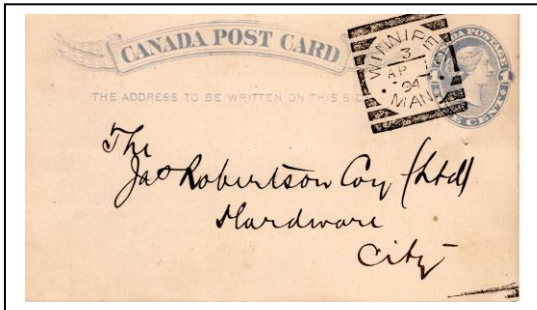 CANADA POST CARD
THE ADDRESS TO BE WRITTEN ON THIS
WINNIPEG
3
AP
94
MAN
CANADA POSTAGE
CENT
The
Jas Robertson Coy (Ltd)
Hardware
City